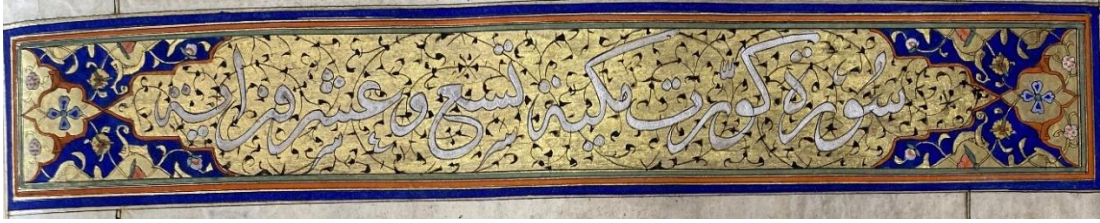 سُورَة كوّرت مكية تسع وعشرون اية